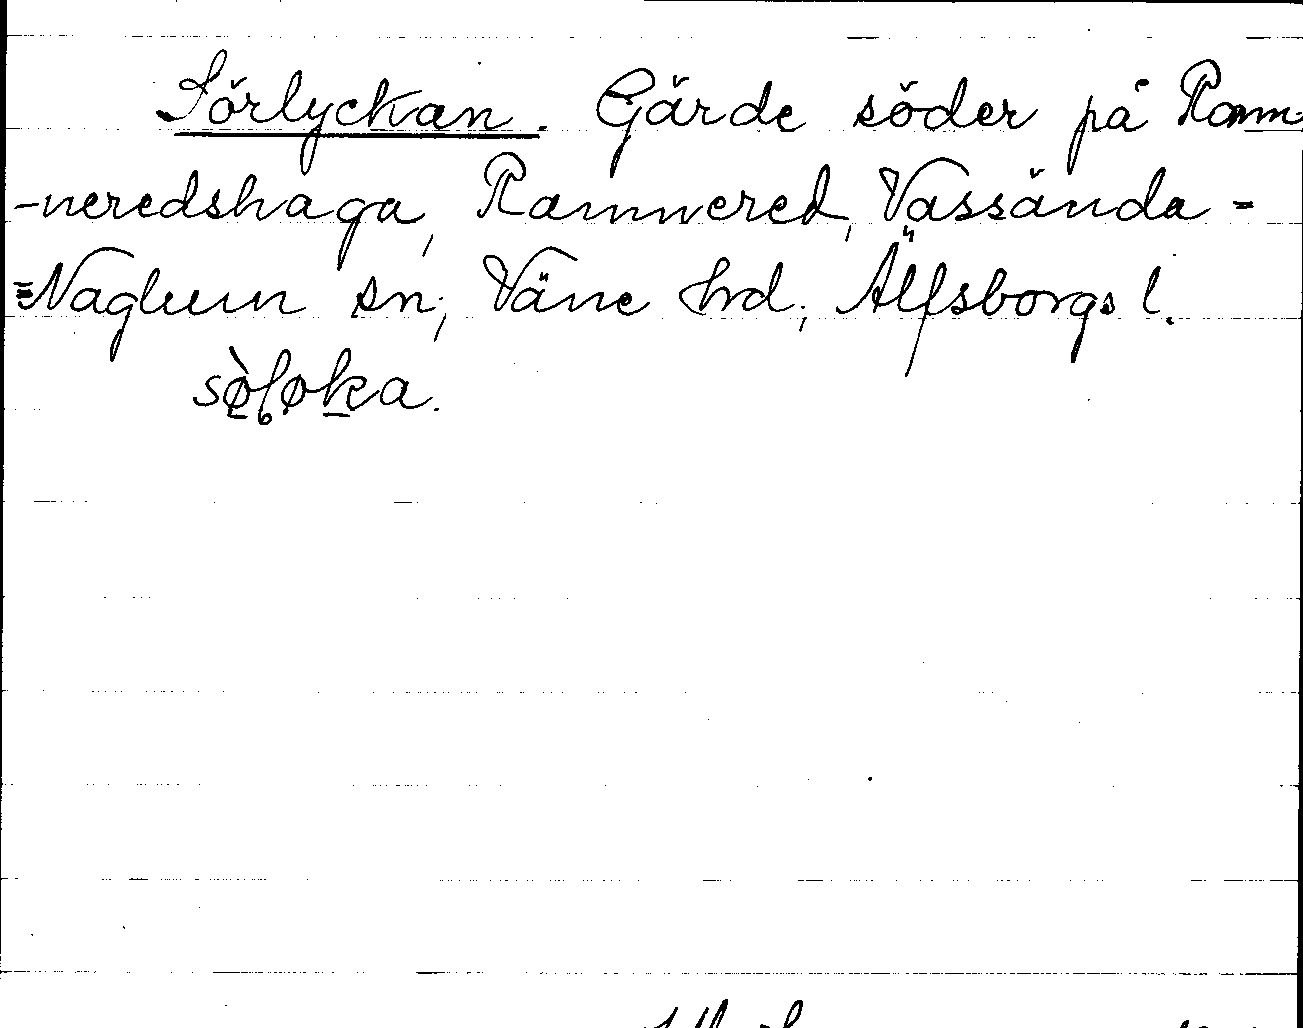 Sörlyckan. Gärde söder på Ram-
-neredshaga, Ramnered, Vassända-
=Naglum sn, Väne hrd, Älfsborgs l.